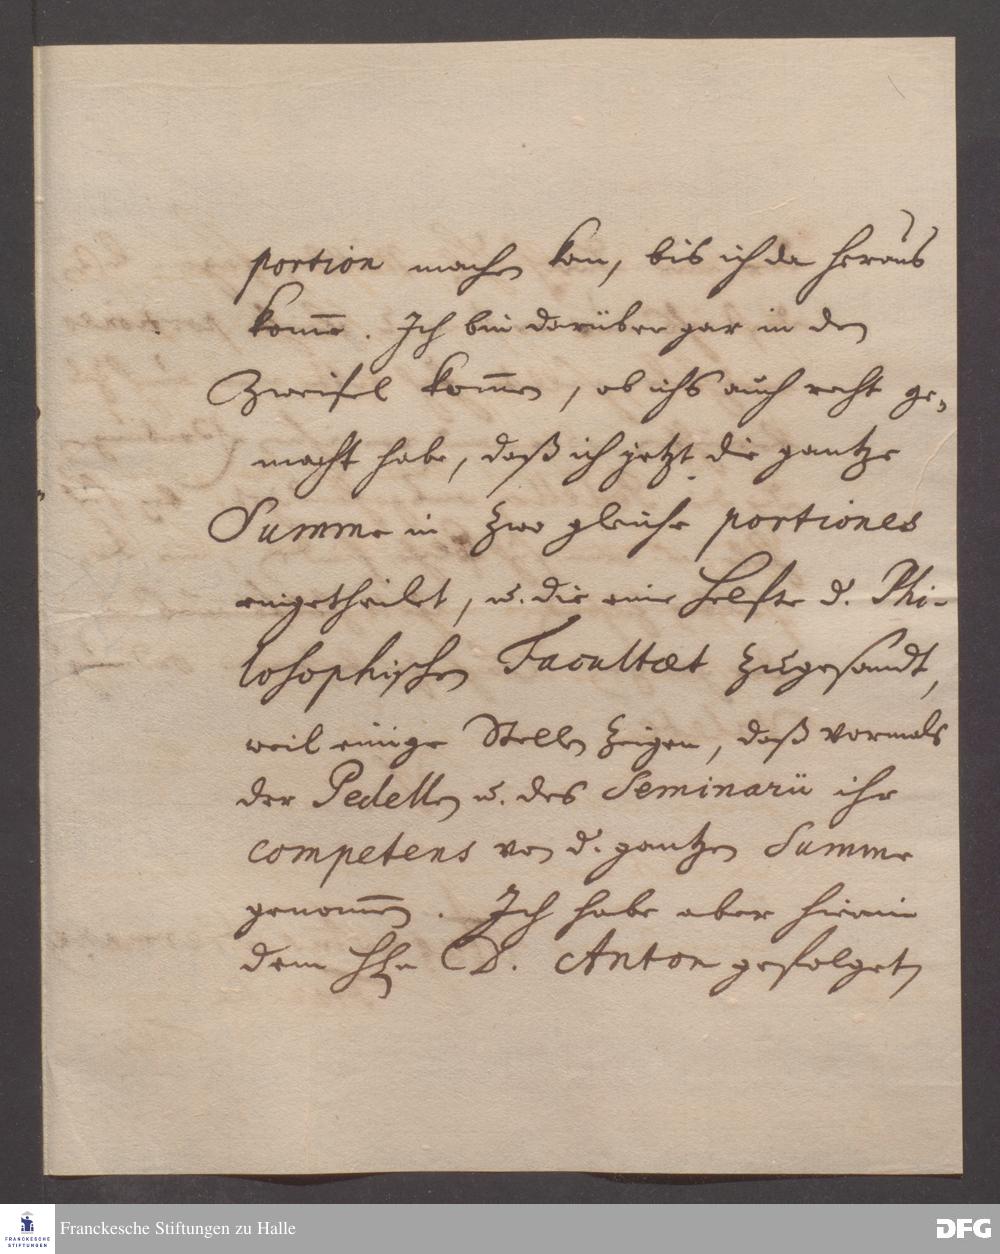 portion machen kan, bis ich da heraus
kom̅e. Ich bin darüber gar in den
Zweifel kom̅en, ob ichs auch recht ge-
macht habe, daß ich jetzt die gantze
Summe in zwo gleiche portiones
eingetheilet, u. die eine Helfte d. Phi-
losophischen Facultaet zugesandt,
weil einige Stellen zeigen, daß vormals
der Pedellen u. des Seminarii ihr
competens von d. gantzen Summe
genom̅en. Ich habe aber hierin
dem Hn D. Anton gefolget,
Franckesche Stiftungen zu Halle
FRANCKESCHE
STIFTUNGEN
DFG